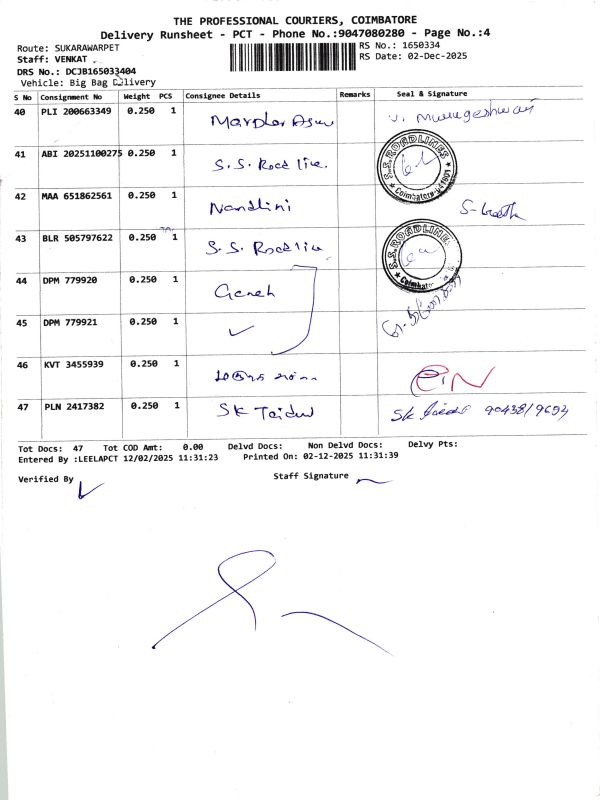 THE PROFESSIONAL COURIERS, COIMBATORE
Delivery Runsheet - PCT - Phone No.:9047080280 - Page No.:4
Route: SUKARAWARPET
RS No.: 1650334
Staff: VENKAT .
RS Date: 02-Dec-2025
DRS No.: DCJB165033404
Vehicle: Big Bag Delivery
S No Consignment No Weight PCS Consignee Details Remarks Seal & Signature
40 PLI 200663349 0.250 1
41 ABI 20251100275 0.250 1 S.S. Road line. S.S. ROADLINES Coimbatore
42 MAA 651862561 0.250 1 Nandhini
43 BLR 505797622 0.250 1 S.S. Road line S.S. ROADLINES Coimbatore
44 DPM 779920 0.250 1 Ganesh
45 DPM 779921 0.250 1
46 KVT 3455939 0.250 1
47 PLN 2417382 0.250 1 SK
Tot Docs: 47 Tot COD Amt: 0.00 Delvd Docs: Non Delvd Docs: Delvy Pts:
Entered By :LEELAPCT 12/02/2025 11:31:23 Printed On: 02-12-2025 11:31:39
Verified By
Staff Signature